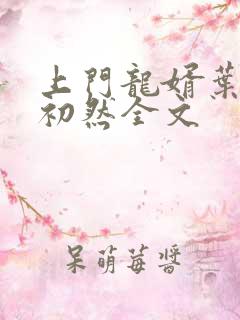 上門龍婿葉
初然全文
呆萌莓醬